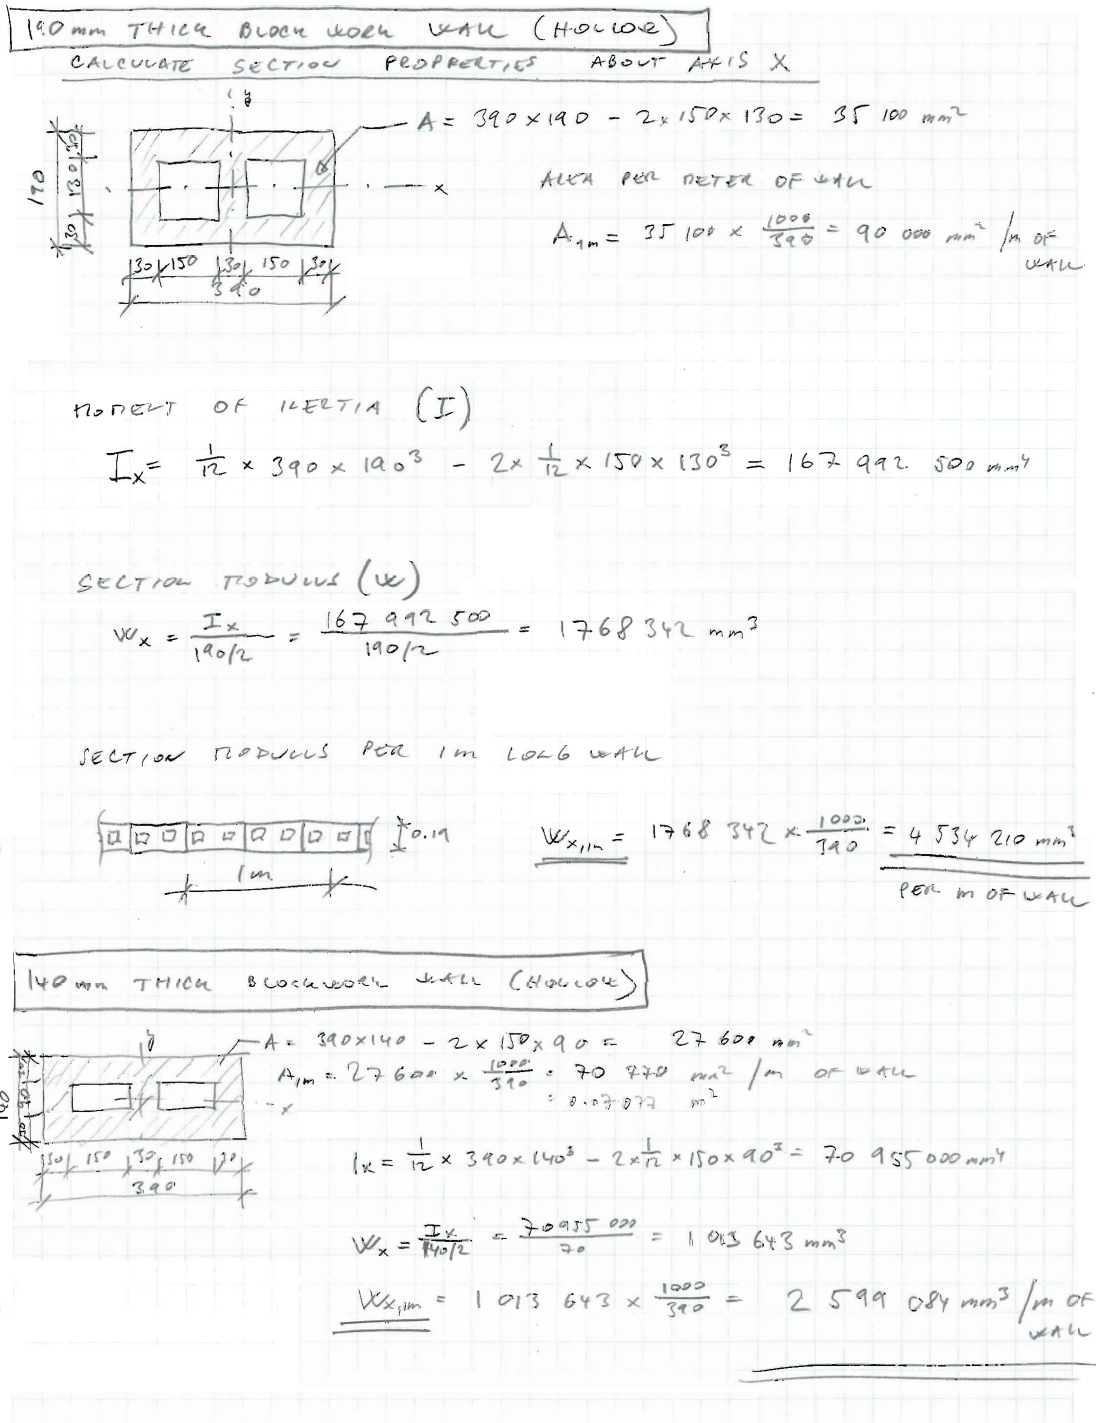 190mm THICK BLOCK WORK WALL (HOLLOW)
CALCULATE SECTION PROPPERTIES ABOUT AXIS X
y
A = 390 x 190 - 2 x 150 x 130 = 35 100 mm²
190
30 130 30
x
AREA PER METER OF WALL
A1m = 35 100 x 1000/390 = 90 000 mm² /m OF WALL
30 150 30 150 30
390
MOMENT OF INERTIA (I)
Ix = 1/12 x 390 x 190³ - 2x 1/12 x 150 x 130³ = 167 992 500 mm⁴
SECTION MODULUS (W)
Wx = Ix / 190/2 = 167 992 500 / 190/2 = 1768 342 mm³
SECTION MODULUS PER 1m LONG WALL
0.19
1m
Wx,1m = 1768 342 x 1000/390 = 4 534 210 mm³
PER m OF WALL
140mm THICK BLOCKWORK WALL (HOLLOW)
y
A = 390x140 - 2 x 150 x 90 = 27 600 mm²
A1m = 27 600 x 1000/390 = 70 770 mm² /m OF WALL
= 0.07077 m²
x
140
30 150 30 150 30
390
Ix = 1/12 x 390 x 140³ - 2x 1/12 x 150 x 90³ = 70 955 000 mm⁴
Wx = Ix / 140/2 = 70955 000 / 70 = 1 013 643 mm³
Wx,1m = 1 013 643 x 1000/390 = 2 599 084 mm³ /m OF WALL